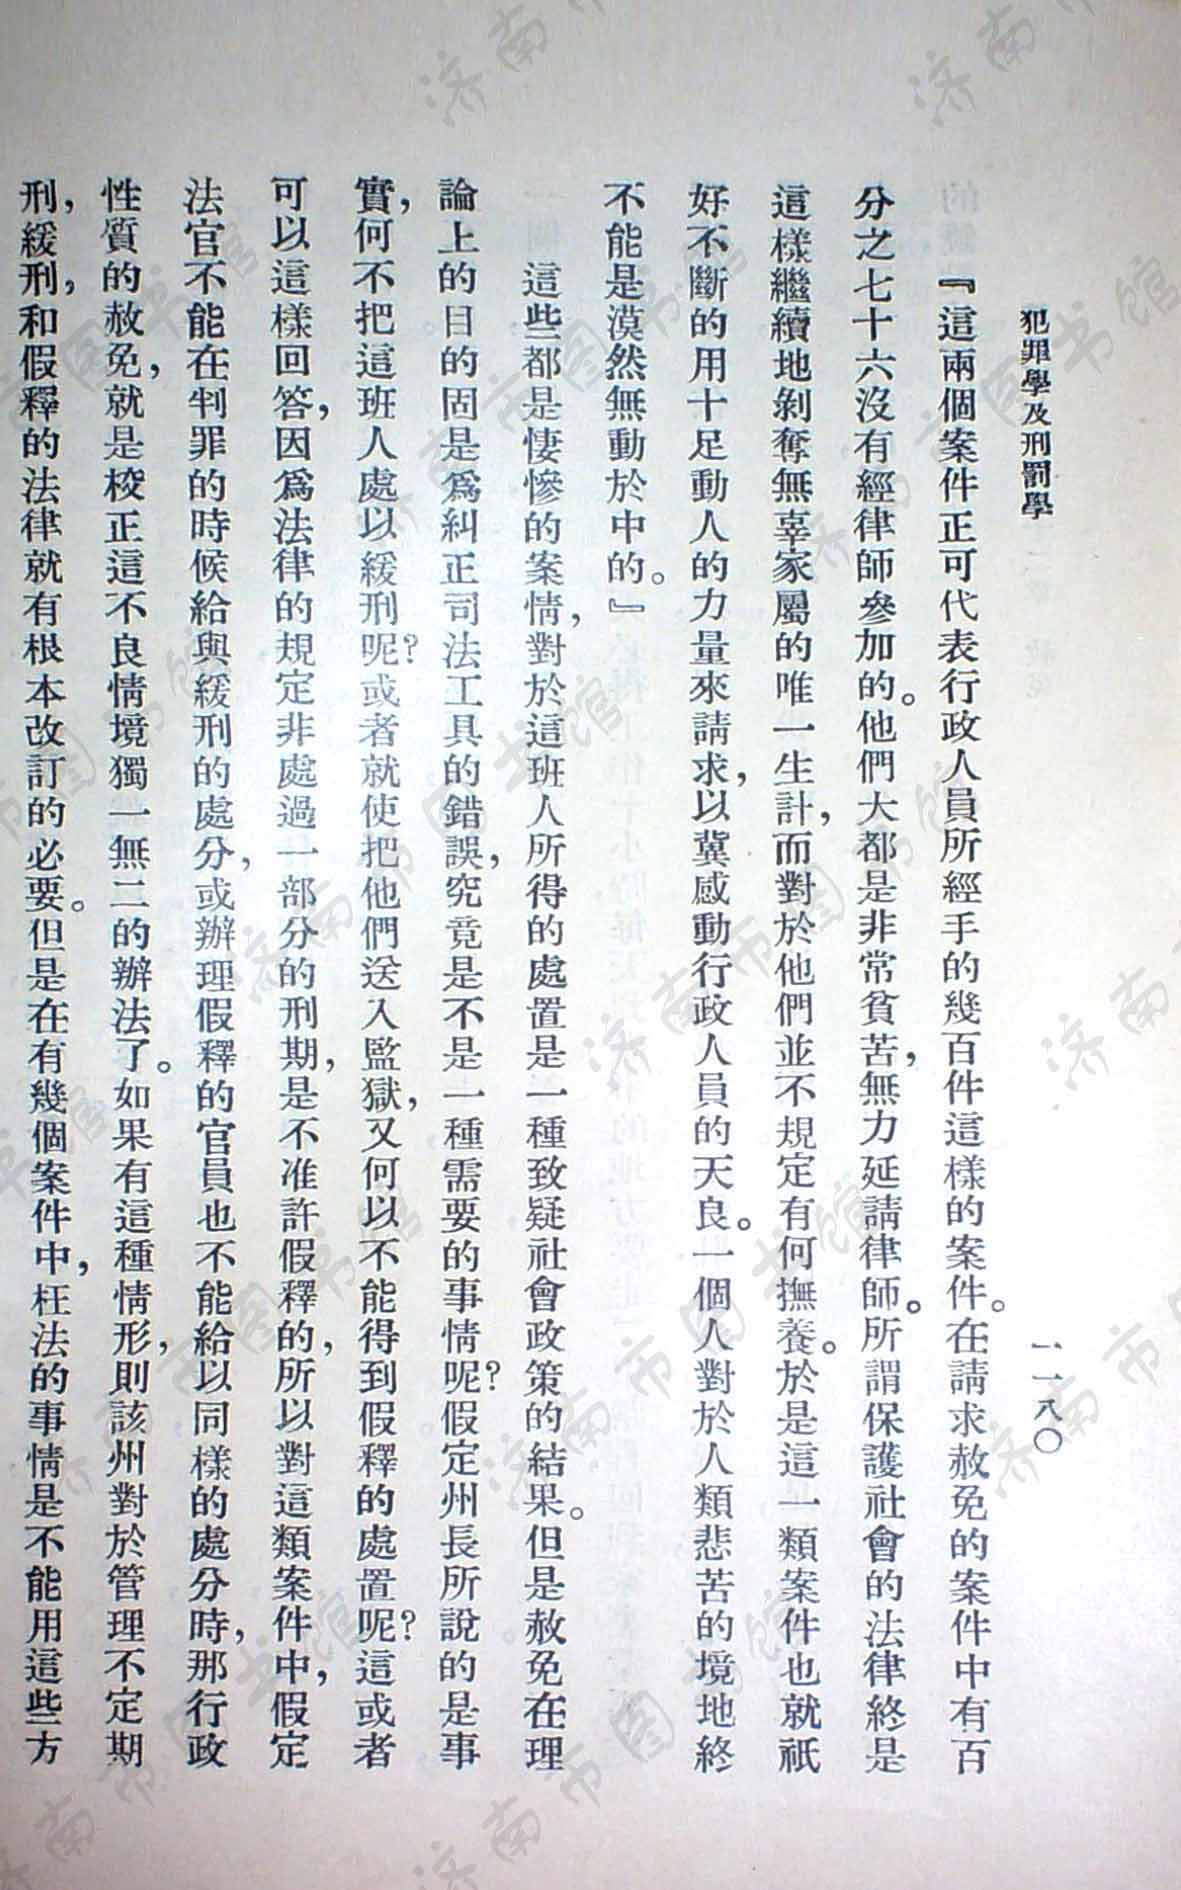 犯罪學及刑罰學
一一八〇
『這兩個案件正可代表行政人員所經手的幾百件這樣的案件。在請求赦免的案件中有百
分之七十六沒有經律師參加的。他們大都是非常貧苦，無力延請律師。所謂保護社會的法律終是
這樣繼續地剝奪無辜家屬的唯一生計，而對於他們並不規定有何撫養。於是這一類案件也就祇
好不斷的用十足動人的力量來請求，以冀感動行政人員的天良。一個人對於人類悲苦的境地終
不能是漠然無動於中的。』
這些都是悽慘的案情，對於這班人所得的處置是一種致疑社會政策的結果。但是赦免在理
論上的目的固是爲糾正司法工具的錯誤，究竟是不是一種需要的事情呢？假定州長所說的是事
實，何不把這班人處以緩刑呢？或者就使把他們送入監獄，又何以不能得到假釋的處置呢？這或者
可以這樣回答，因爲法律的規定非處過一部分的刑期，是不准許假釋的，所以對這類案件中，假定
法官不能在判罪的時候給與緩刑的處分，或辦理假釋的官員也不能給以同樣的處分時，那行政
性質的赦免，就是校正這不良情境獨一無二的辦法了。如果有這種情形，則該州對於管理不定期
刑，緩刑，和假釋的法律就有根本改訂的必要。但是在有幾個案件中，枉法的事情是不能用這些方
济南市图书馆